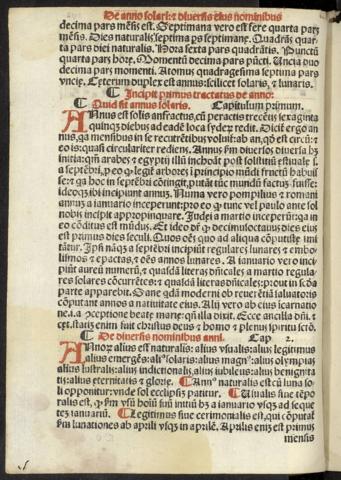 De anno solari: et diuersis eius nominibus
decima pars mēsis est. Septimana vero est fere quarta pars
mēsis. Dies naturalis septima ps septimane. Quadrās quar
ta pars diei naturalis. Hora sexta pars quadrātis. Punctū
quarta pars hore. Momentū decima pars pūcti. Uncia duo
decima pars momenti. Atomus quadragesima septima pars
vncie. Ceterum duplex est annus: scilicet solaris, et lunaris.
¶ Incipit primus tractatus de anno:
¶ Quid sit annus solaris. Capitulum primum.
Annus est solis anfractus, cū peractis trecētis sexaginta
quinqz diebus ad eadē loca syder redit. Dicit ergo an
nus, qa mensibus in se recurrētibus voluit: ab an, qd est circū: et
eo is: quasi circulariter rediens. Annus sm diuersos diuersa hz
initia: qm arabes et egyptij illū inchoāt post solstitiū estiuale
a septēbri, peo qp legē arbores i principio mūdi fructū habuis
se: et qa hoc in septēbri cōtingit, putāt tūc mundū factus fuisse:
ideoqz ibi incipiunt annus. Numa vero pompilius et romani
annus a ianuario inceperunt: pro eo qp tunc vel paulo ante sol
nobis incipit appropinquare. Judei a martio inceperūt: qa in
eo cōditus est mūdus. Et ideo dr qp decimusoctauus dies eius
est primus dies seculi. Quos oēs quo ad aliqua cōputiste imi
tātur. Ipsi nāqz a septēbri incipiūt regulares lunares et embo
lismos et epactas, et oēs annos lunares. A ianuario vero inci
piūt aureū numerū, et quasdā literas dnicales a martio regula
res solares cōcurrētes: et quasdā literas dnicales: prout in scda
parte apparebit. Oane qdā moderni ob reuerētiā saluatoris
cōputant annos a natiuitate eius. Alij vero ab eius icarnatio
ne .i. a pceptione beate marie: qn illa dixit. Ecce ancilla dni.
¶ De diuersis nominibus anni. Cap 2.
Annor alius est naturalis: alius vsualis: alius legitimus
alius emergēs: alius solaris: alius magnus: alius olympias
alius lustralis: alius indictionalis, alius iubileus: alius benignita
tis: alius eternitatis et glorie. ¶ Annus naturalis est cū luna so
li opponitur: vnde sol eclipsis patitur. ¶ Usualis siue tēpo
ralis est, qp sm vsū hoim suū initiū hz a ianuario vsqz ad seque
tes ianuariū. ¶ Legitimus siue cerimonialis est, qui cōputat
sm lunationes ab aprili vsqz in aprilē. Aprilis eniz est primus
mensis